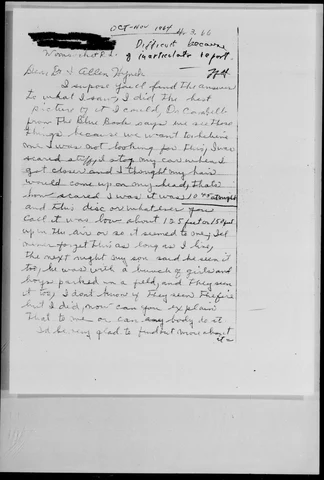 OCT-NOV 1964
Difficult because
of inarticulate report.
Dear Dr J Allen Hynek
I suppose you'll find the answer
to what I saw, I did the best
picture of it I could, Dr
from The Blue Book says we see these
things because we want to believe
me I was not looking for this, I was
scared stiff, I stop my car when I
got closer and I thought my hair
would come up on my head, thats
how scared I was it was 10 45 at night
and this disc or whatever you
call it was low about 125 feet or 150 feet
up in the air or so it seemed to me, I'll
never forget this as long as I live,
the next night my son said he seen it
too, he was with a bunch of girls and
boys parked in a field, and they seen
it too, I dont know if they seen the fire
but I did, now can you explain
that to me or can any body do it
I'd be very glad to find out more about
it